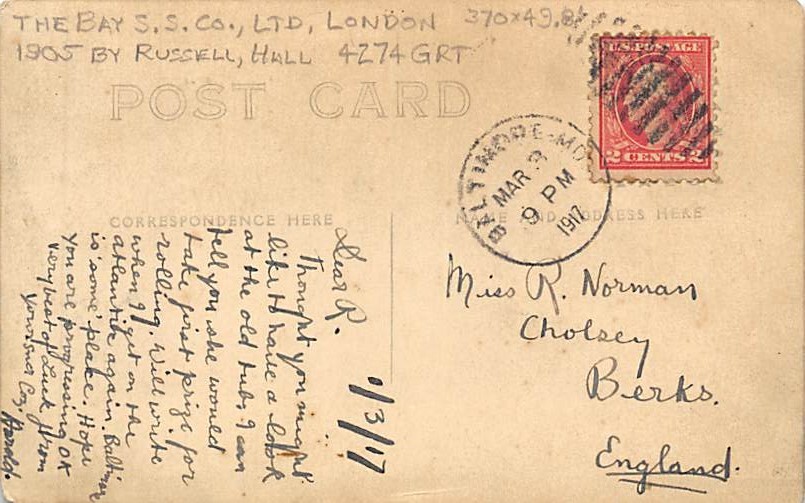 THE BAY S.S. CO., LTD, LONDON 370×49.8
1905 BY RUSSELL, HALL 4274 GRT
POST CARD
U.S. POSTAGE
2 CENTS 2
BALTIMORE-MD.
MAR 3
9 PM
1917
CORRESPONDENCE HERE
NAME AND ADDRESS HERE
1/3/17
Dear R.
Thought you might
like to have a look
at the old tub. I can
tell you she would
take first prize for
rolling. Will write
when I get on the
atlantic again. Baltimore
is 'some' place. Hope
you are progressing OK
very best of Luck from
Your Coz,
Harold.
Miss R. Norman
Cholsey
Berks.
England.